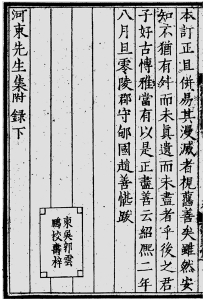 本訂正且併易其漫滅者視舊善矣雖然安
知不猶有舛而未真遺而未盡者乎後之君
子好古博雅當有以是正盡善云紹熙二年
八月旦零陵郡守郇國趙善愖跋
河東先生集附錄下
東吳郭雲
鵬校壽梓